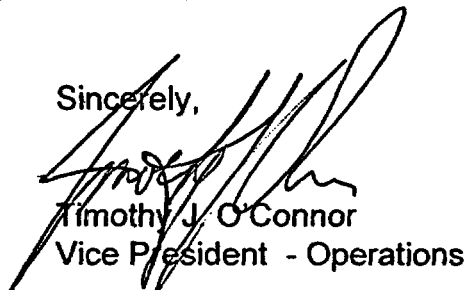 Sincerely,
Timothy J. O'Connor
Vice President - Operations